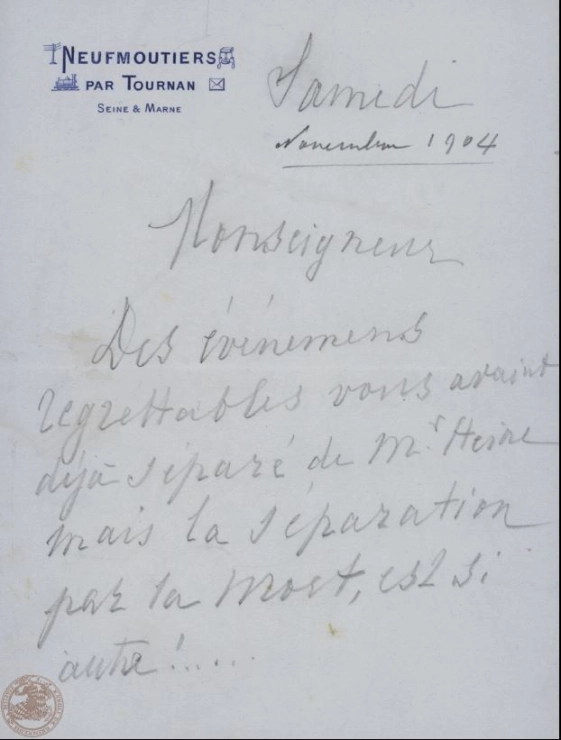 NEUFMOUTIERS
PAR TOURNAN
SEINE & MARNE
Samedi
Novembre 1904
Monseigneur
Des événements
regrettables vous avaint
déjà séparé de Mr Heine
mais la séparation
par la mort, est si
autre!.....